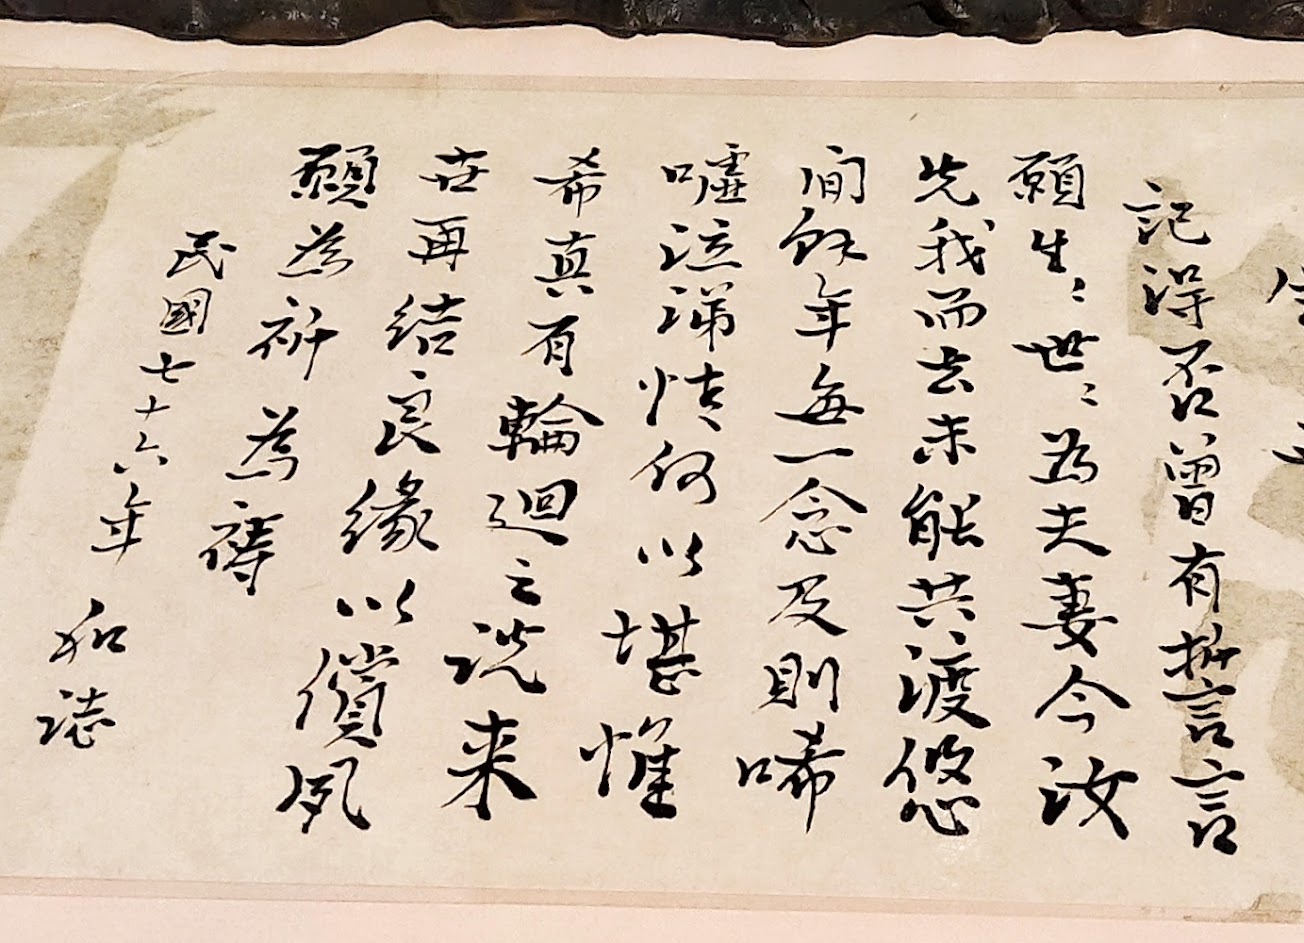 記得否曾有誓言
願生〻世〻為夫妻今汝
先我而去未能共渡悠
閒餘年每一念及則唏
噓流涕情何以堪惟
希真有輪迴之説来
世再結良緣以償夙
願為祈為禱
民國七十六年
和誌